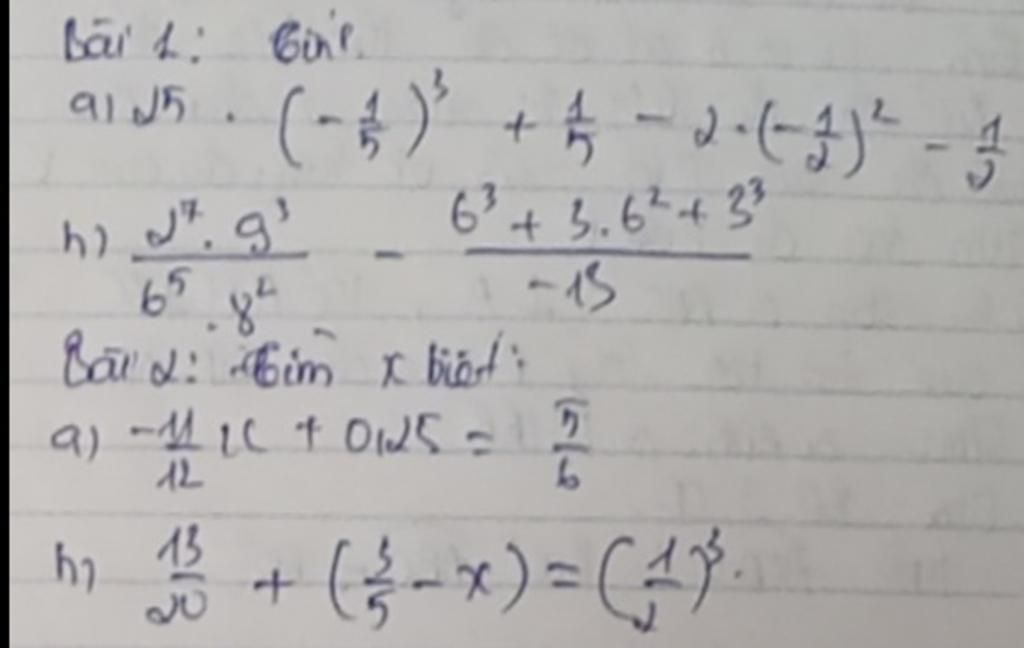 Bài 1: Tính.
a) 25 . (-1/5)^3 + 1/5 - 2.(-1/2)^2 - 1/2
b) (2^7 . 9^3)/(6^5 . 8^2) - (6^3 + 3.6^2 + 3^3)/(-13)
Bài 2: Tìm x biết:
a) -11/12 x + 0,25 = 5/6
b) 13/20 + (3/5 - x) = (1/2)^3.